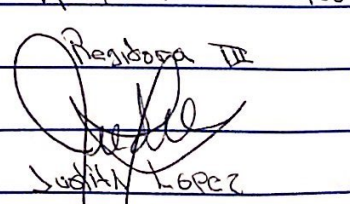 Regidora III
Judith Lopez